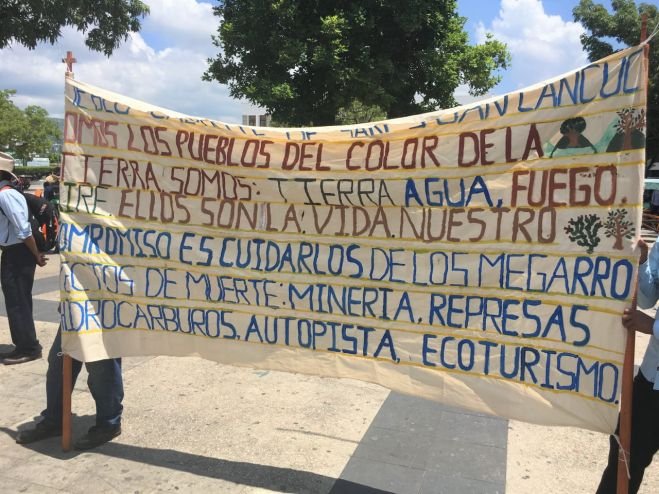 PUEBLO CREYENTE DE SAN JUAN CANCUC
OMOS LOS PUEBLOS DEL COLOR DE LA
TIERRA. SOMOS: TIERRA AGUA, FUEGO.
IRE. ELLOS SON LA VIDA. NUESTRO
OMPROMISO ES CUIDARLOS DE LOS MEGARRO
ECTOS DE MUERTE: MINERIA, REPRESAS
HIDROCARBUROS, AUTOPISTA, ECOTURISMO.